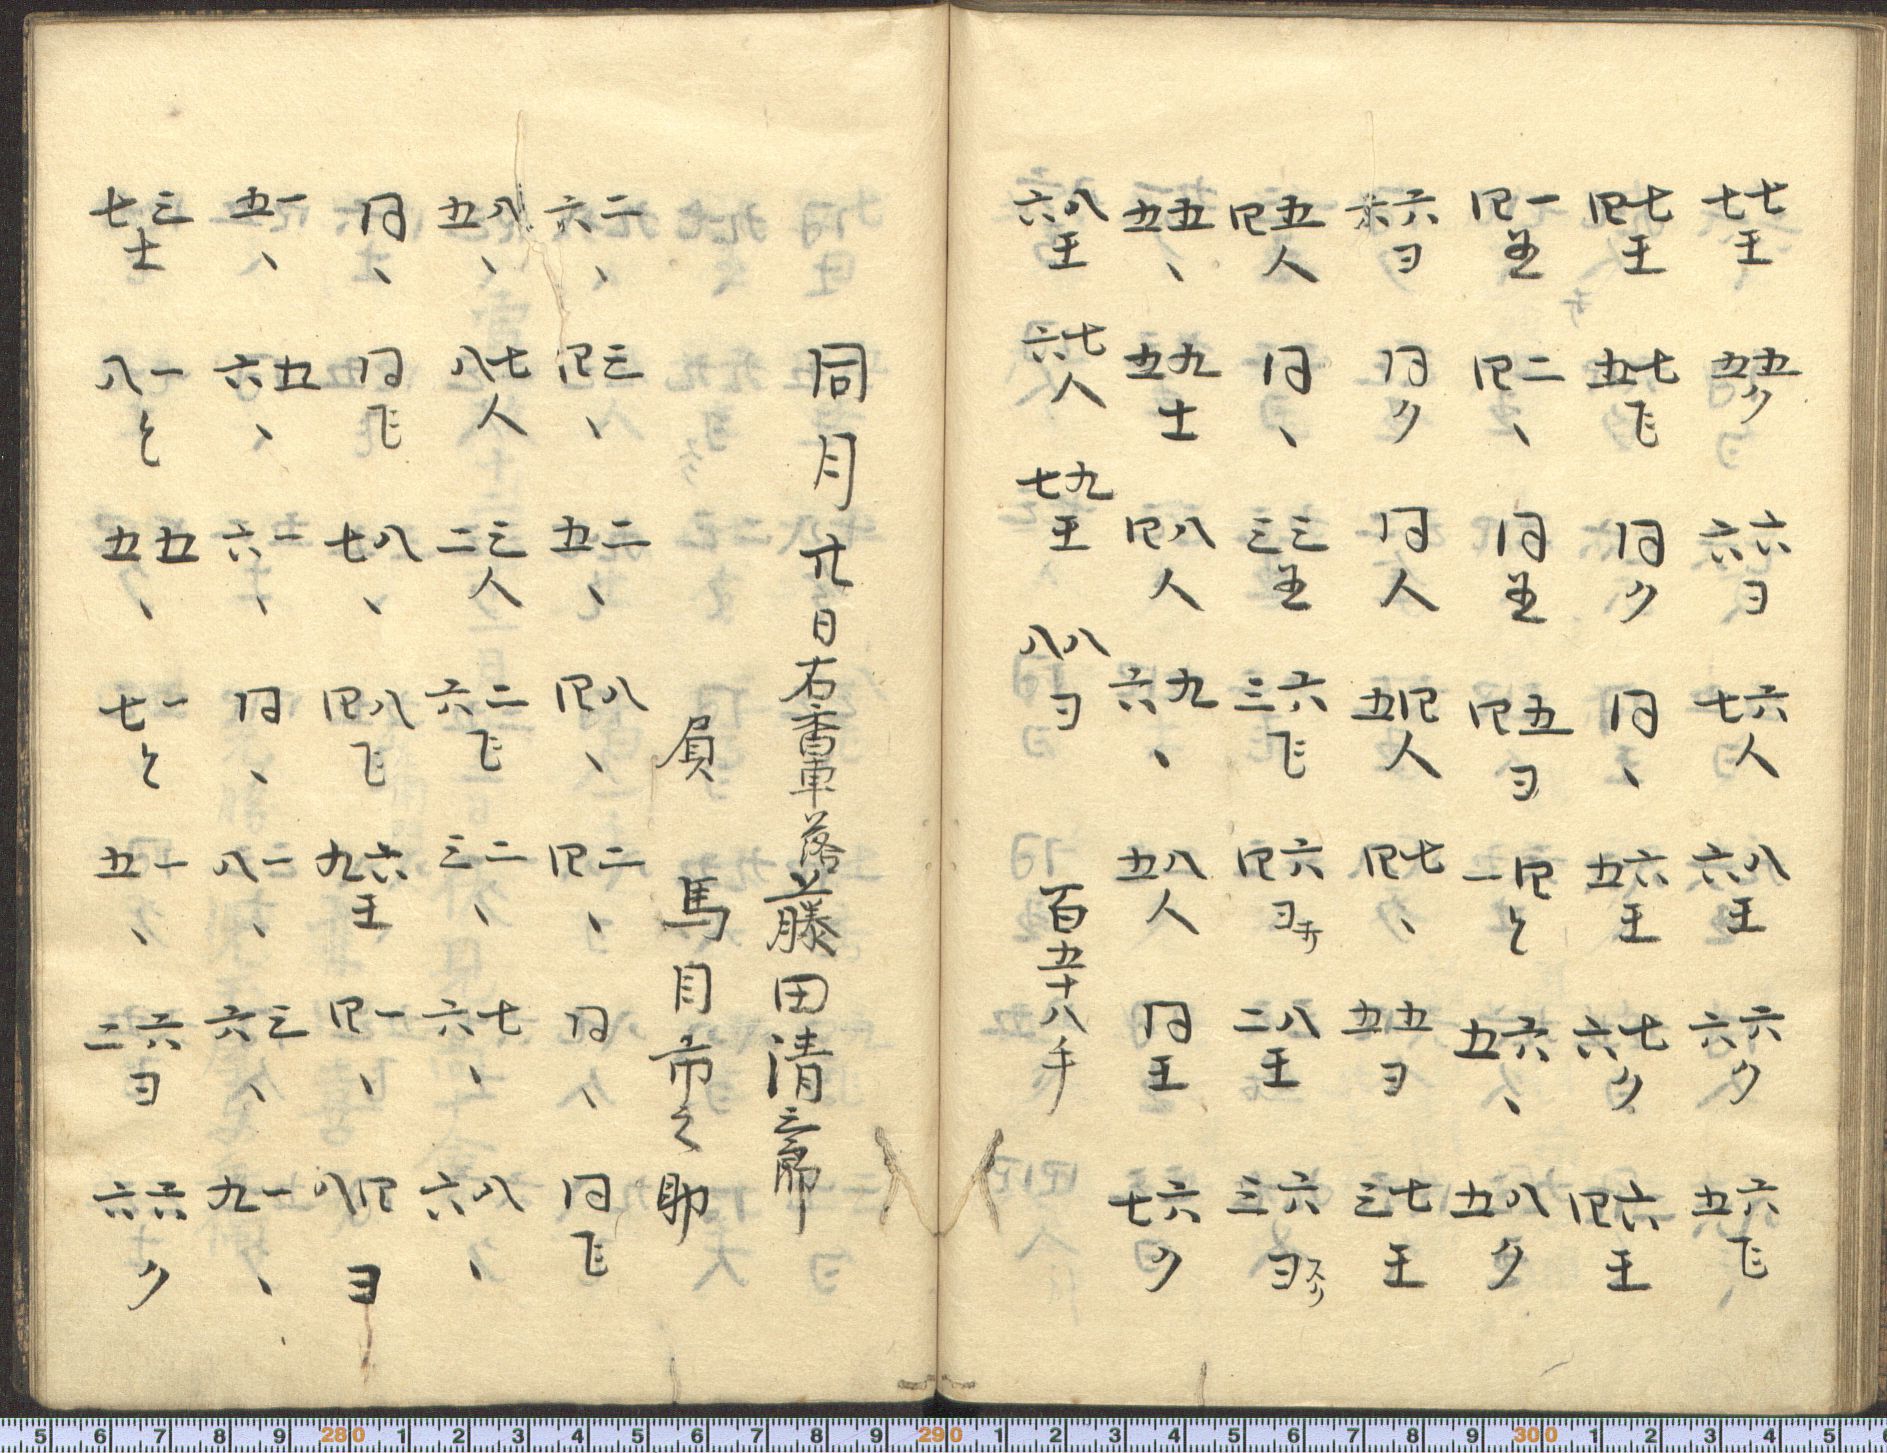 七七王 五五ク 六六ヨ 六七人 八六王 六六ク 六五飞
七四王 七五飞 同ク 同、 六五王 七六ク 六四王
一四 二四、 同 五四ヨ 四一と 六五、 八五ク
六六ヨ 同ク 同人 四五人 七四、 五五ヨ 七三王
五四人 同、 三三 六三飞 六四ヨナ 八二王 六三ヨスク
五五、 九五士 八四人 九六、 八五人 同王 六七ク
八六王 七六人 九七王 八八ヨ 百五十八手
同月廿日右香車落藤田清三郎
屓 馬目市之助
二六、 三四、 二五、 八四、 二四、 同、 同飞
八五、 七八人 三二人 二六飞 二三、 七六、 八六、
同、 同飞 八七、 八四飞 六九王 一四、 四八ヨ
一五、 五六、 一六、 同、 二八、 三六、 一九、
三七士 一八と 五五、 一七と 一五、 六二ヨ 六六ク